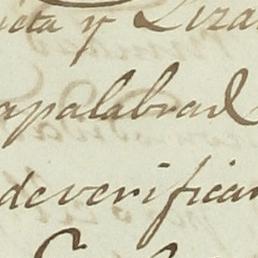 icta y Liza
apalabrad
deverifica